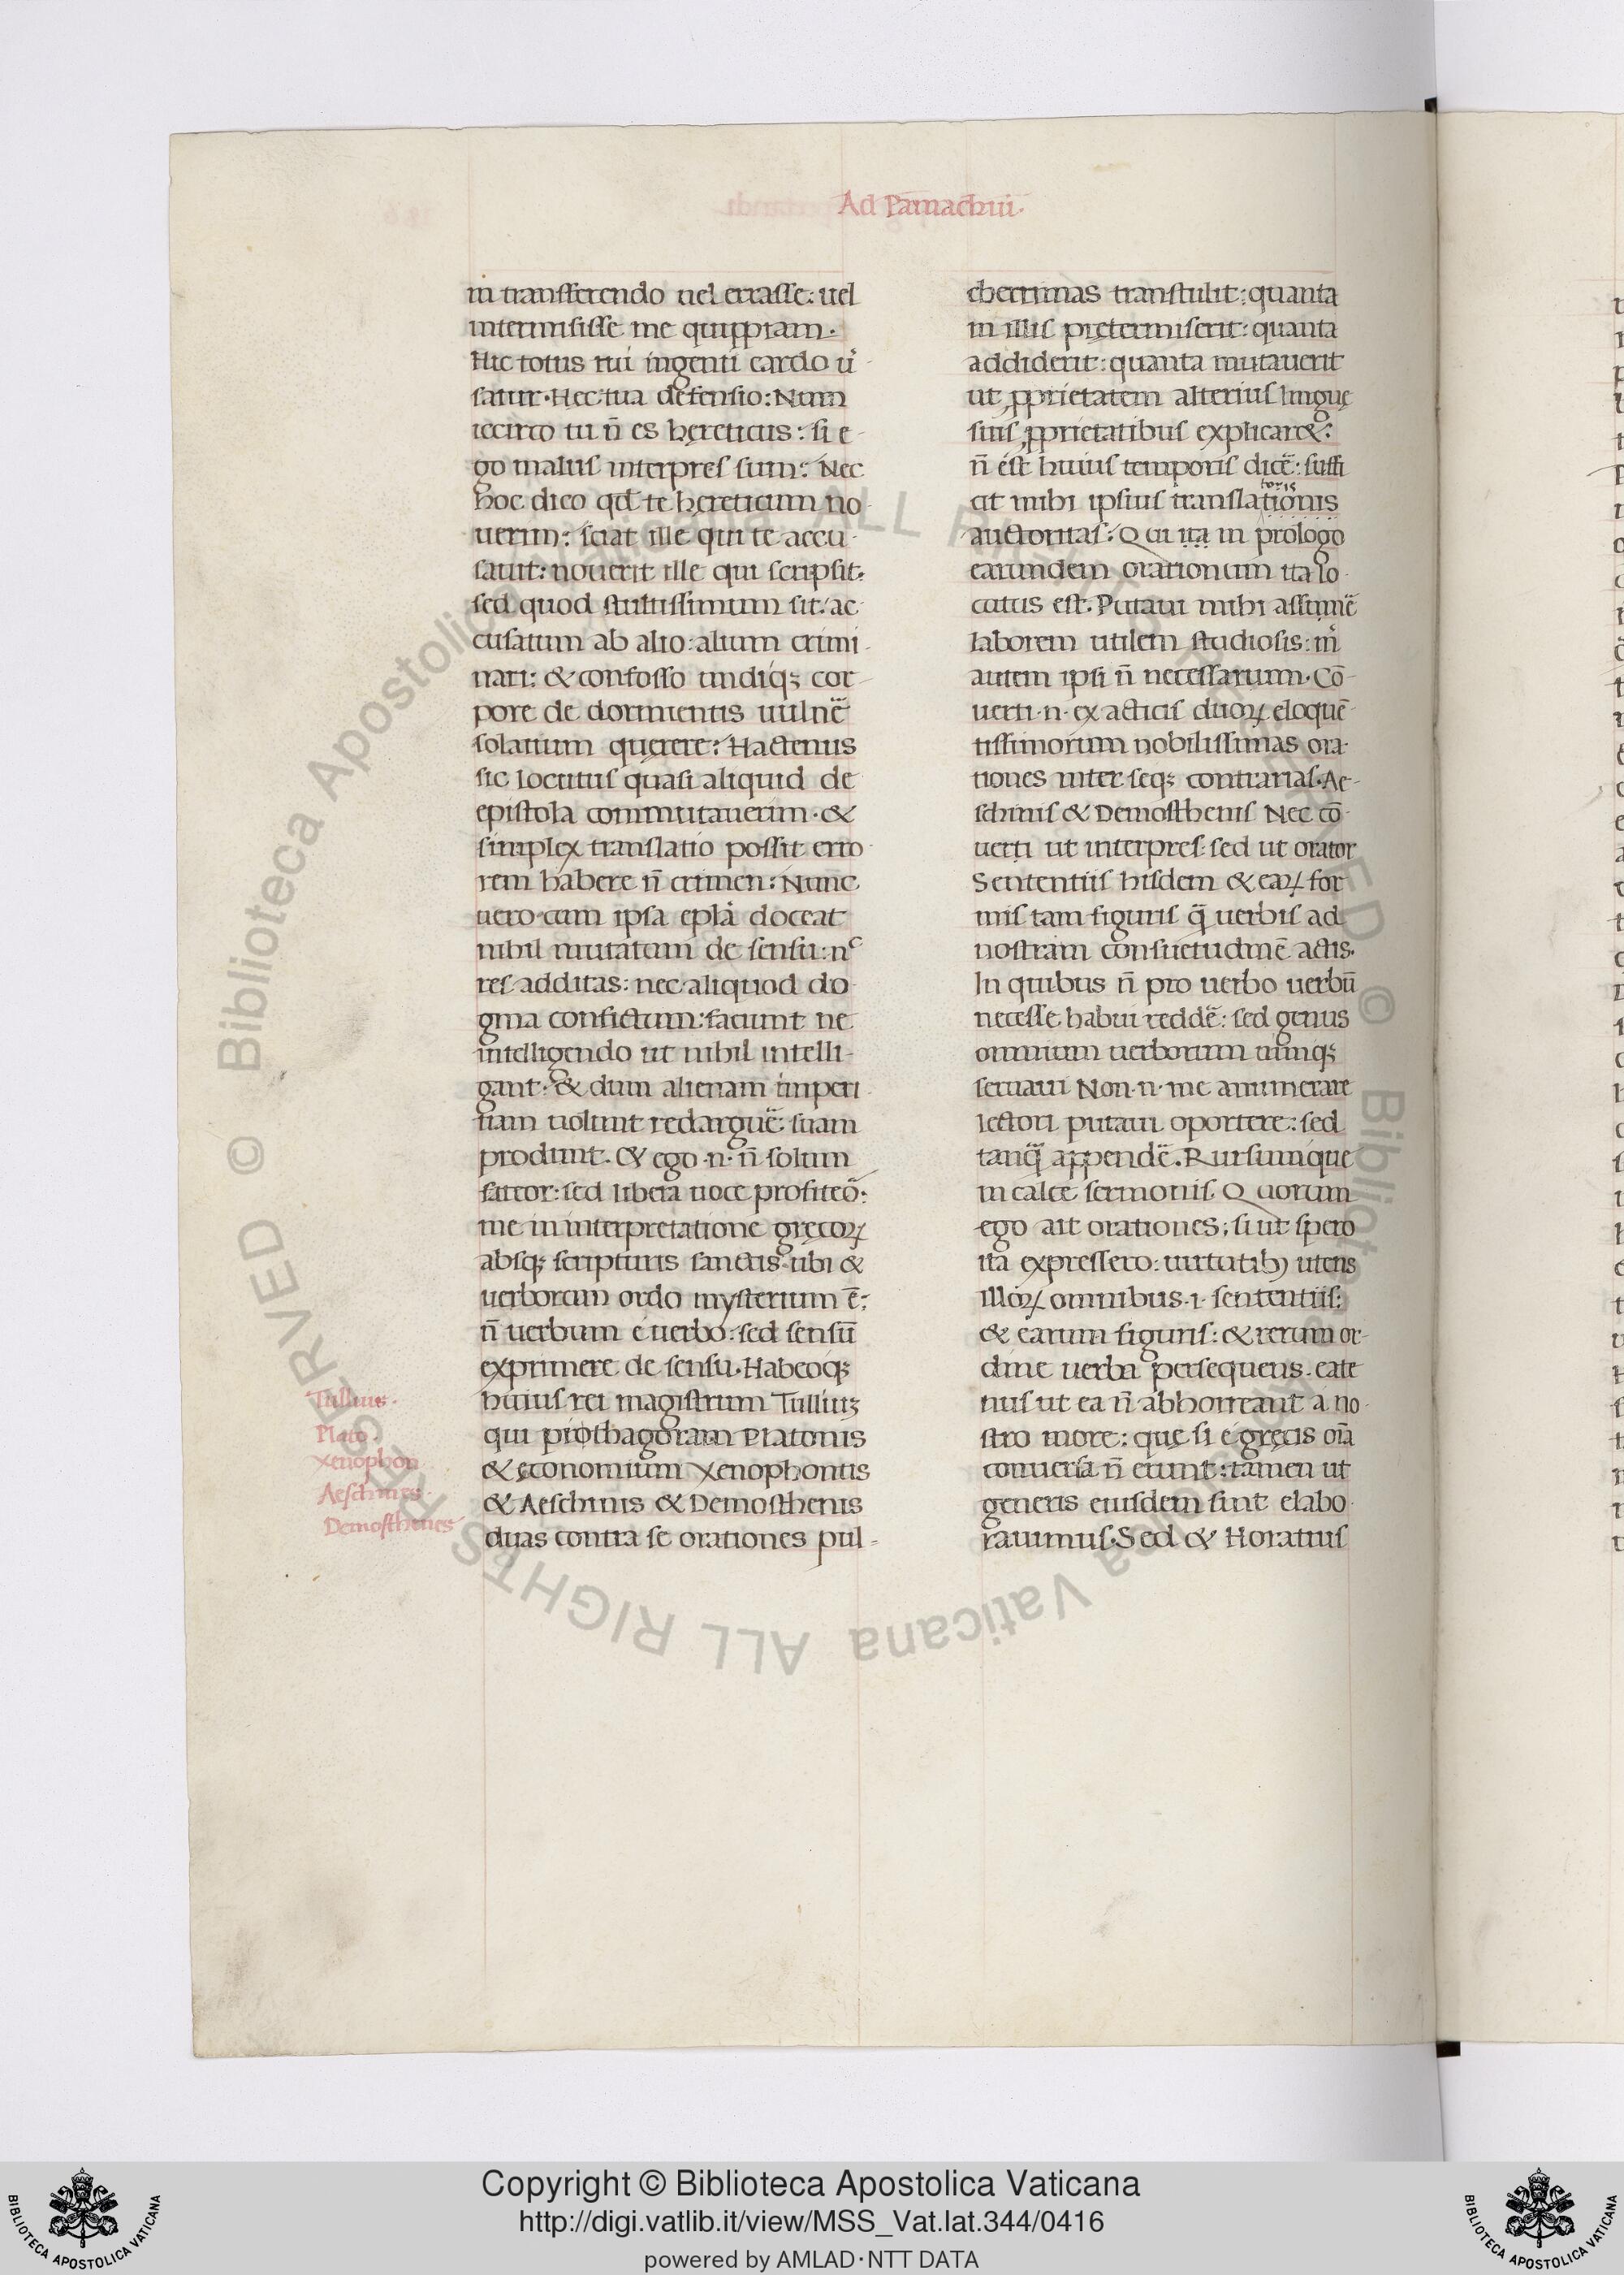 Ad Pāmachiū.
in transferendo uel errasse: uel
intermisisse me quippiam.
Hic totus tui ingenti cardo ů
satur. Hec tua defensio: Num
iccirco tu n̄ es hęreticus: si e-
go malus interpres sum: Nec
hoc dico qd̄ te hęreticum no
uerim: sciat ille qui te accu-
sauit: nouerit ille qui scripsit:
sed quod stultissimum sit: ac
cusatum ab alio: alium crimi-
nari: & confosso undiq; cor-
pore de dormientis uulnē
solatium quęrere: Hactenus
sic locutus quasi aliquid de
epistola commutauerim. &
simplex translatio possit erro-
rem habere n̄ crimen: Nunc
uero cum ipsa epl̄a doceat
nihil mutatum de sensu: nc
res additas: nec aliquod do-
gma confictum: faciunt ne
intelligendo ut nihil intelli-
gant: & dum alienam imperi
tiam uolunt redarguē: suam
produnt. & ego .n. n̄ solum
fateor: sed libera uoce profiteō:
me in interpretatione gręcoꝝ
absq; scripturis sanctis ubi &
uerborum ordo mysterium ē:
n̄ uerbum e uerbo: sed sensū
exprimere de sensu. Habeoq;
huius rei magistrum Tulliuꝫ
qui piothagoram Platonis
& ęconomium Xenophontis
& Aeschinis & Demosthenis
duas contra se orationes pul-
Tullius.
Plato.
Xenophon
Aeschines.
Demosthenes
cherrimas transtulit: quanta
in illis pretermiserit: quanta
addiderit: quanta mutauerit
ut ꝓprietatem alterius linguę
suis ꝓprietatibus explicar&:
n̄ est huius temporis dicē: suffi
toris
cit mihi ipsius translationis
auctoritas: Qui ita in prologo
earundem orationum ita lo-
cutus est. Putaui mihi assumē
laborem utilem studiosis: m̉
autem ipsi n̄ necessarum. Cō-
uerti .n. ex acticis duoꝝ eloquē-
tissimorum nobilissimas ora-
tiones inter seq; contrarias. Ae-
schinis & Demosthenis Nec cō-
uerti ut interpres: sed ut orator
Sententiis hisdem & eaꝝ for
mis tam figuris q̄ uerbis ad
nostram consuetudinē actis.
In quibus n̄ pro uerbo uerbū
necesse habui reddē: sed genus
omnium uerborum uimq;
seruaui Non .n. me annumerare
lectori putaui oportere: sed
tanq̄ appendē. Rursumque
in calce sermonis Quorum
ego ait orationes: si ut spero
ita expressero: uirtutibꝫ utens
illoꝝ omnibus .i. sententiis:
& earum figuris: & rerum or-
dine uerba persequens. eate
nus ut ea n̄ abhorreant a no-
stro more: que si e gręcis oīa
conuersa n̄ erunt: tamen ut
generis eiusdem sint elabo-
rauimus. Sed & Horatius
Copyright © Biblioteca Apostolica Vaticana
http://digi.vatlib.it/view/MSS_Vat.lat.344/0416
powered by AMLAD·NTT DATA
BIBLIOTECA APOSTOLICA VATICANA
BIBLIOTECA APOSTOLICA VATICANA
© Biblioteca Apostolica Vaticana ALL RIGHTS RESERVED © Biblioteca Apostolica Vaticana ALL RIGHTS RESERVED